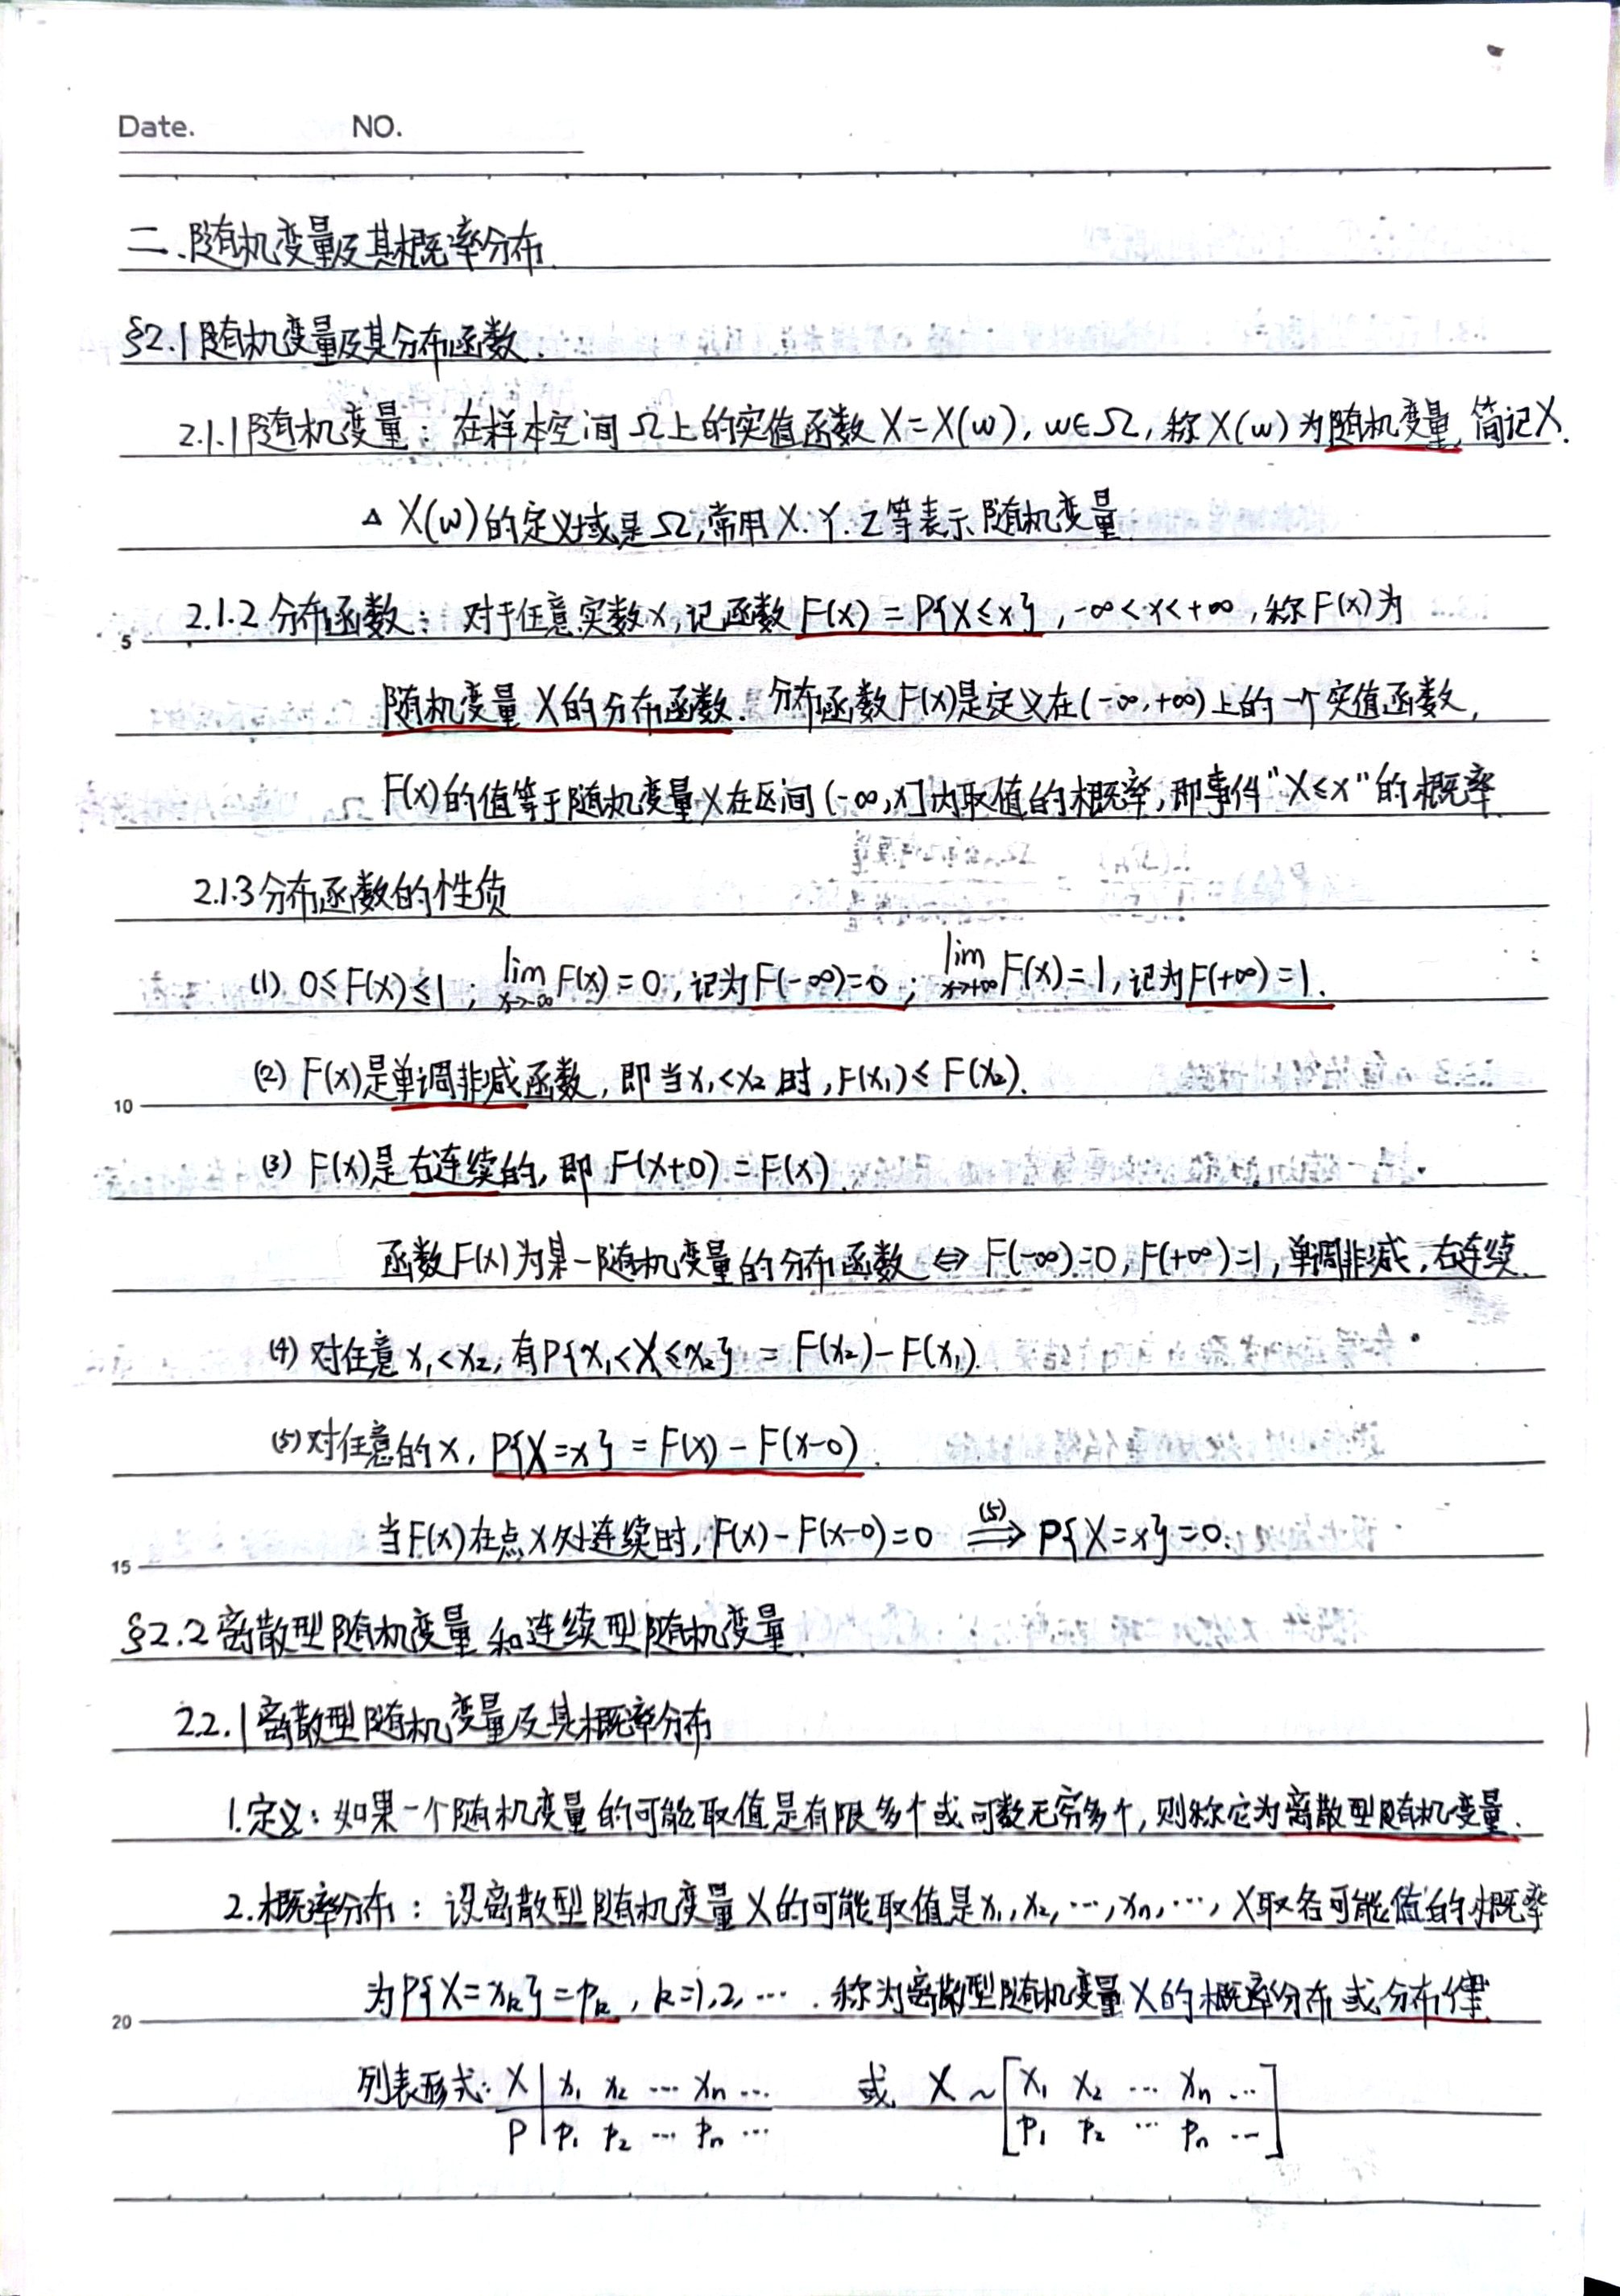 Date. NO.
二、随机变量及其概率分布.
§2.1 随机变量及其分布函数.
2.1.1 随机变量：在样本空间Ω上的实值函数 X=X(ω), ω∈Ω, 称X(ω)为随机变量, 简记X.
△ X(ω)的定义域是Ω, 常用X.Y.Z等表示随机变量.
2.1.2 分布函数：对于任意实数x, 记函数 F(x) = P{X≤x}, -∞<x<+∞, 称F(x)为
5
随机变量X的分布函数. 分布函数F(x)是定义在(-∞,+∞)上的一个实值函数,
F(x)的值等于随机变量X在区间(-∞,x]内取值的概率, 即事件"X≤x"的概率.
2.1.3 分布函数的性质
(1) 0≤F(x)≤1; lim x→-∞ F(x)=0, 记为F(-∞)=0; lim x→+∞ F(x)=1, 记为F(+∞)=1.
(2) F(x)是单调非减函数, 即当x₁<x₂时, F(x₁)≤F(x₂).
10
(3) F(x)是右连续的, 即 F(x+0)=F(x).
函数F(x)为某一随机变量的分布函数 ⇔ F(-∞)=0, F(+∞)=1, 单调非减, 右连续.
(4) 对任意x₁<x₂, 有P{x₁<X≤x₂} = F(x₂)-F(x₁).
(5) 对任意的x, P{X=x} = F(x) - F(x-0).
当F(x)在点x处连续时, F(x)-F(x-0)=0 (5)⟹ P{X=x}=0.
15
§2.2 离散型随机变量和连续型随机变量.
2.2.1 离散型随机变量及其概率分布
1.定义：如果一个随机变量的可能取值是有限多个或可数无穷多个, 则称它为离散型随机变量.
2.概率分布：设离散型随机变量X的可能取值是x₁,x₂,⋯,xₙ,⋯, X取各可能值的概率
为P{X=xₖ}=pₖ, k=1,2,⋯. 称为离散型随机变量X的概率分布或分布律.
20
列表形式: X | x₁ x₂ ⋯ xₙ ⋯ 或 X ~ [x₁ x₂ ⋯ xₙ ⋯]
P | p₁ p₂ ⋯ pₙ ⋯ [p₁ p₂ ⋯ pₙ ⋯]